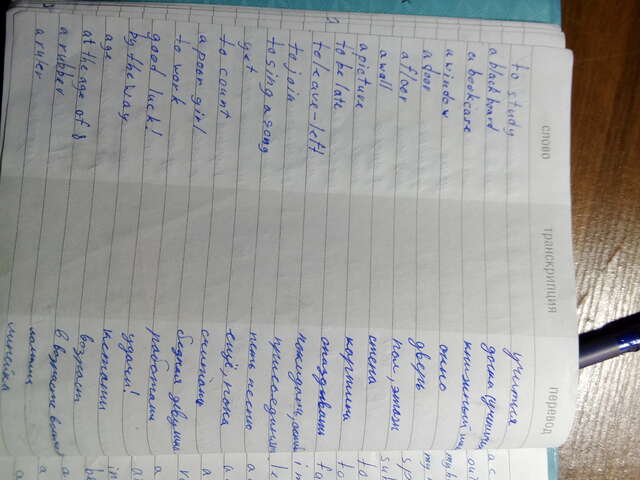 слово транскрипция перевод
to study учиться
a blackboard доска
a bookcase книжный
a window окно
a door дверь
a floor пол, этаж
a wall стена
a picture картина
to be late опаздывать
to leave-left покидать,
to join
to sing a song петь песню
yet ещё, пока
to count считать
a poor girl бедная
to work работать
good luck! удачи!
by the way кстати
age возраст
at the age of 8 в возрасте
a rubber ластик
a ruler линейка